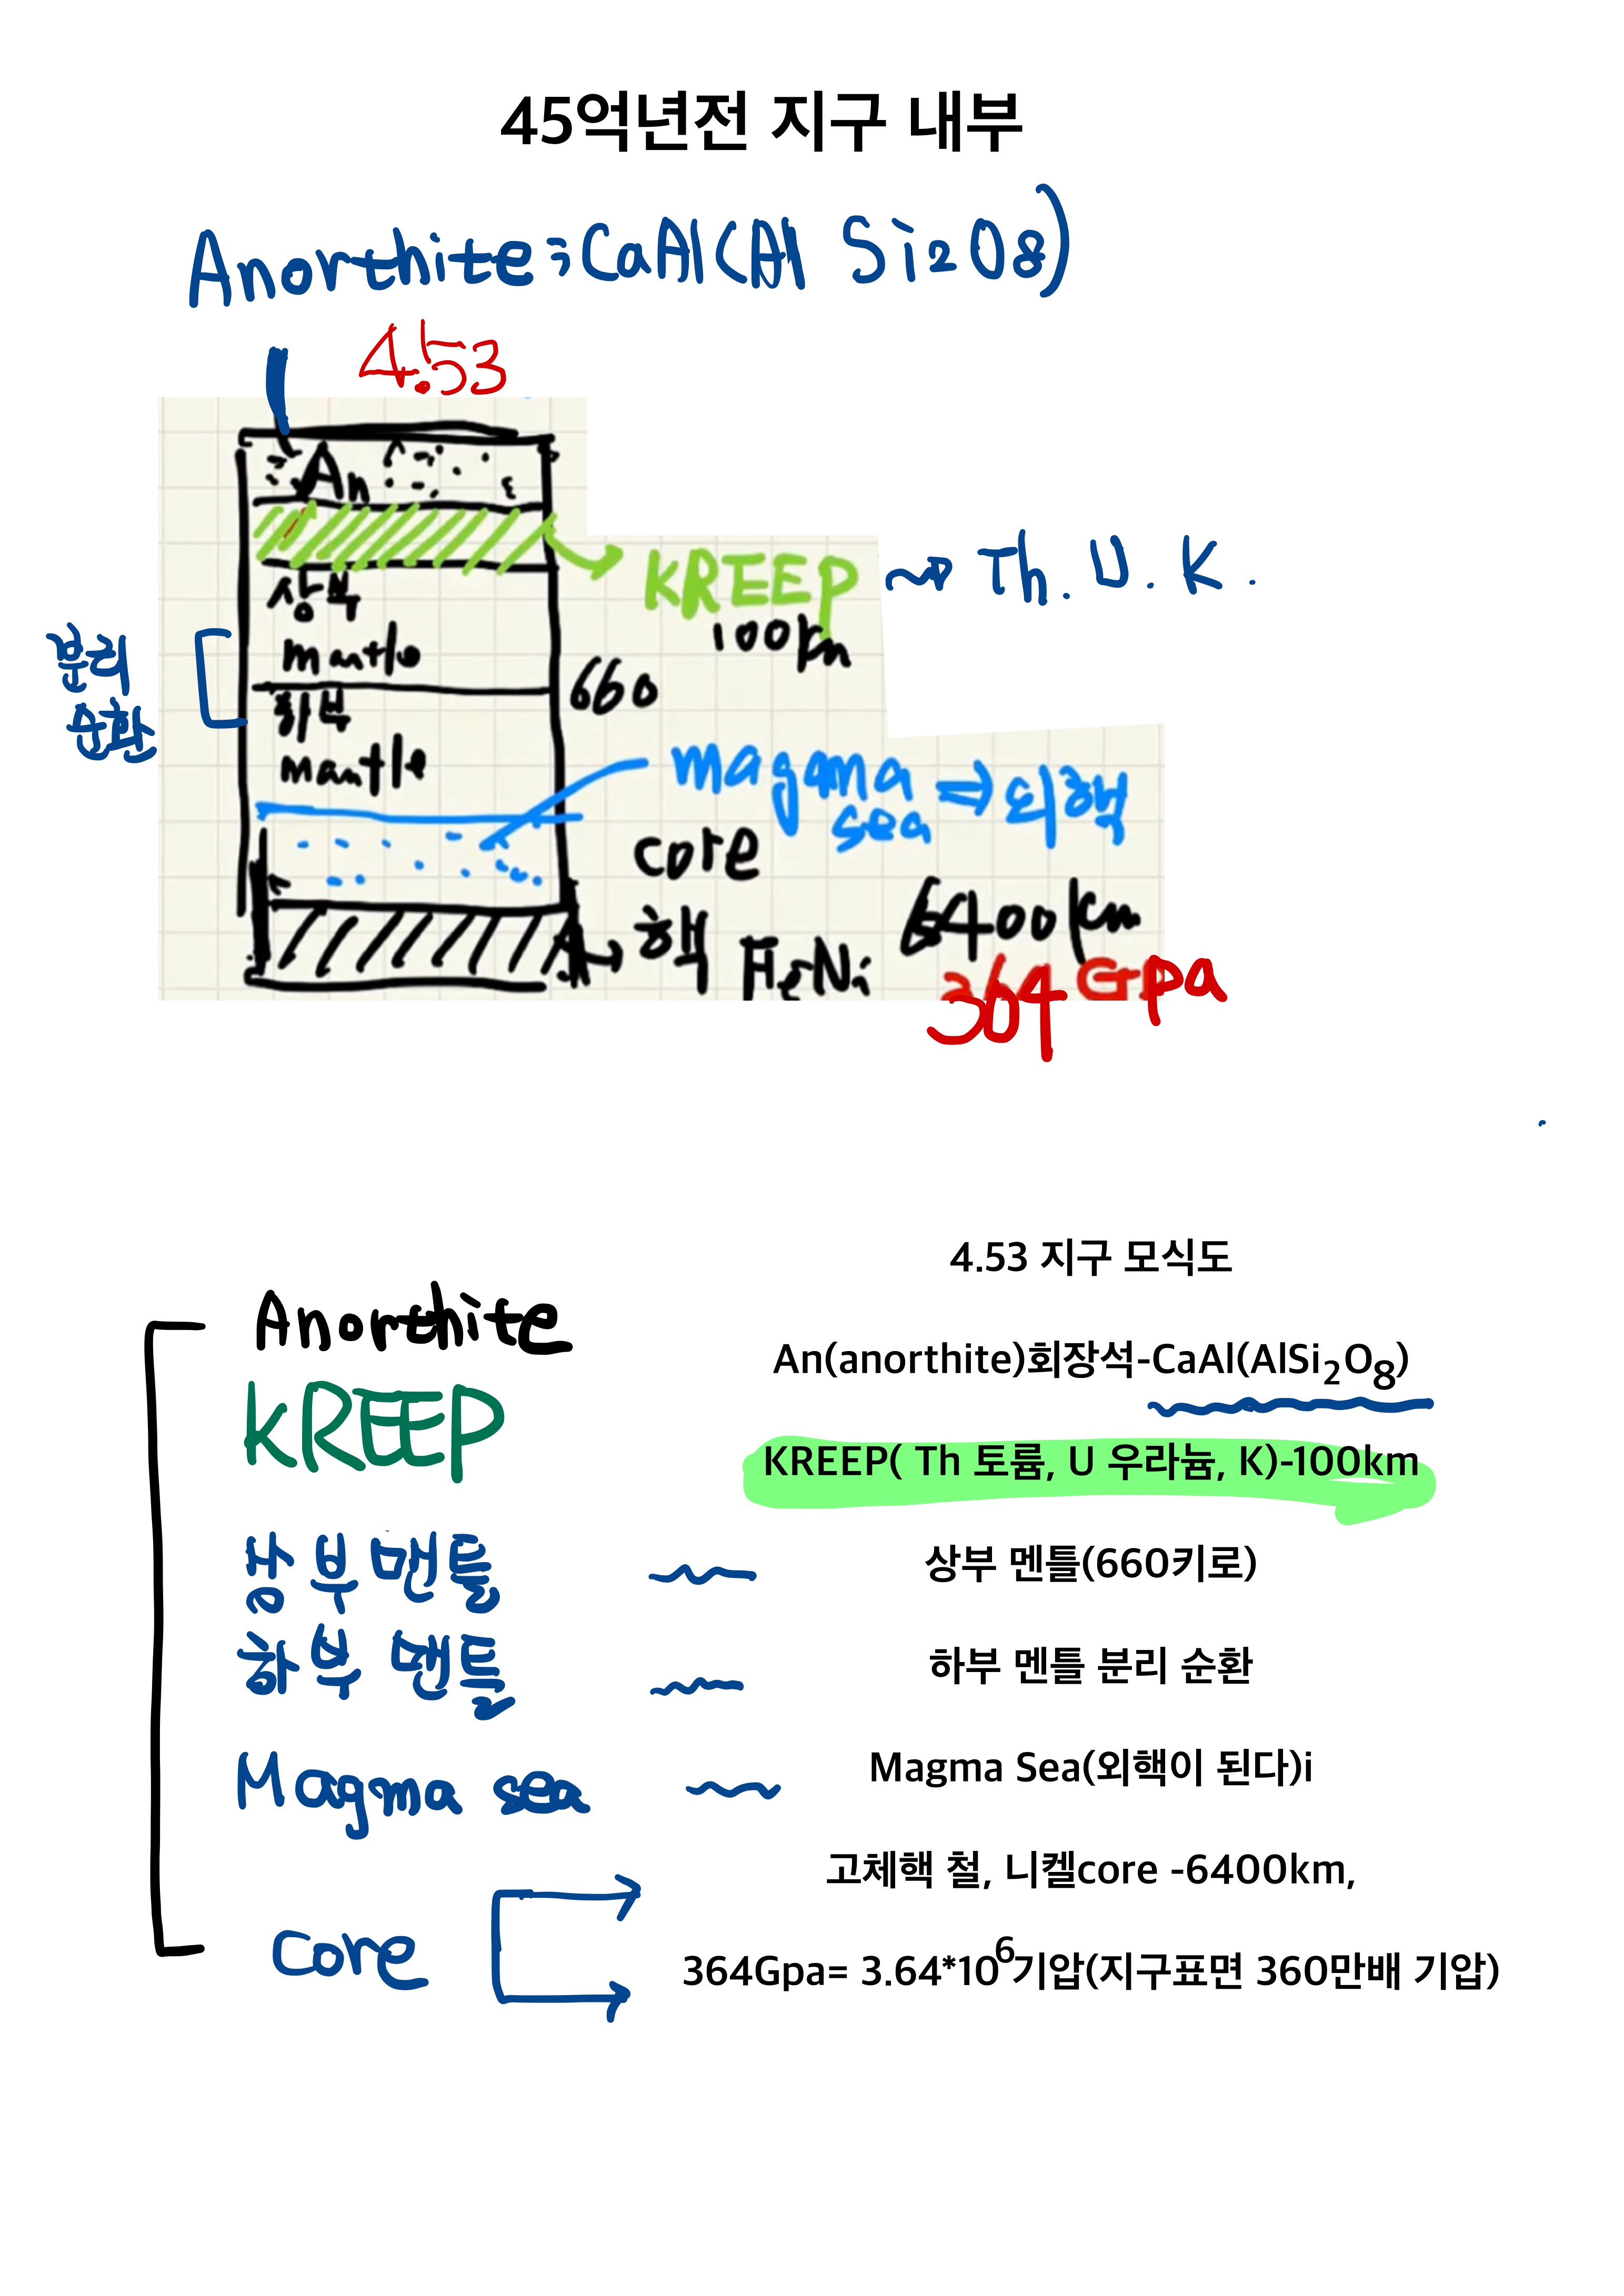 45억년전 지구 내부
Anorthite; CaAl(Al Si2O8)
4.53
An
KREEP ~> Th. U. K.
100km
상부
mantle
660
분리
순환
하부
mantle
magma
sea ⇒ 외핵
core
핵 Fe Ni 6400km
364 Gpa
4.53 지구 모식도
Anorthite
An(anorthite)회장석-CaAl(AlSi2O8)
KREEP
KREEP( Th 토륨, U 우라늄, K)-100km
상부맨틀
상부 멘틀(660키로)
하부 맨틀
하부 멘틀 분리 순환
Magma sea
Magma Sea(외핵이 된다)i
고체핵 철, 니켈core -6400km,
core
364Gpa= 3.64*10^6기압(지구표면 360만배 기압)